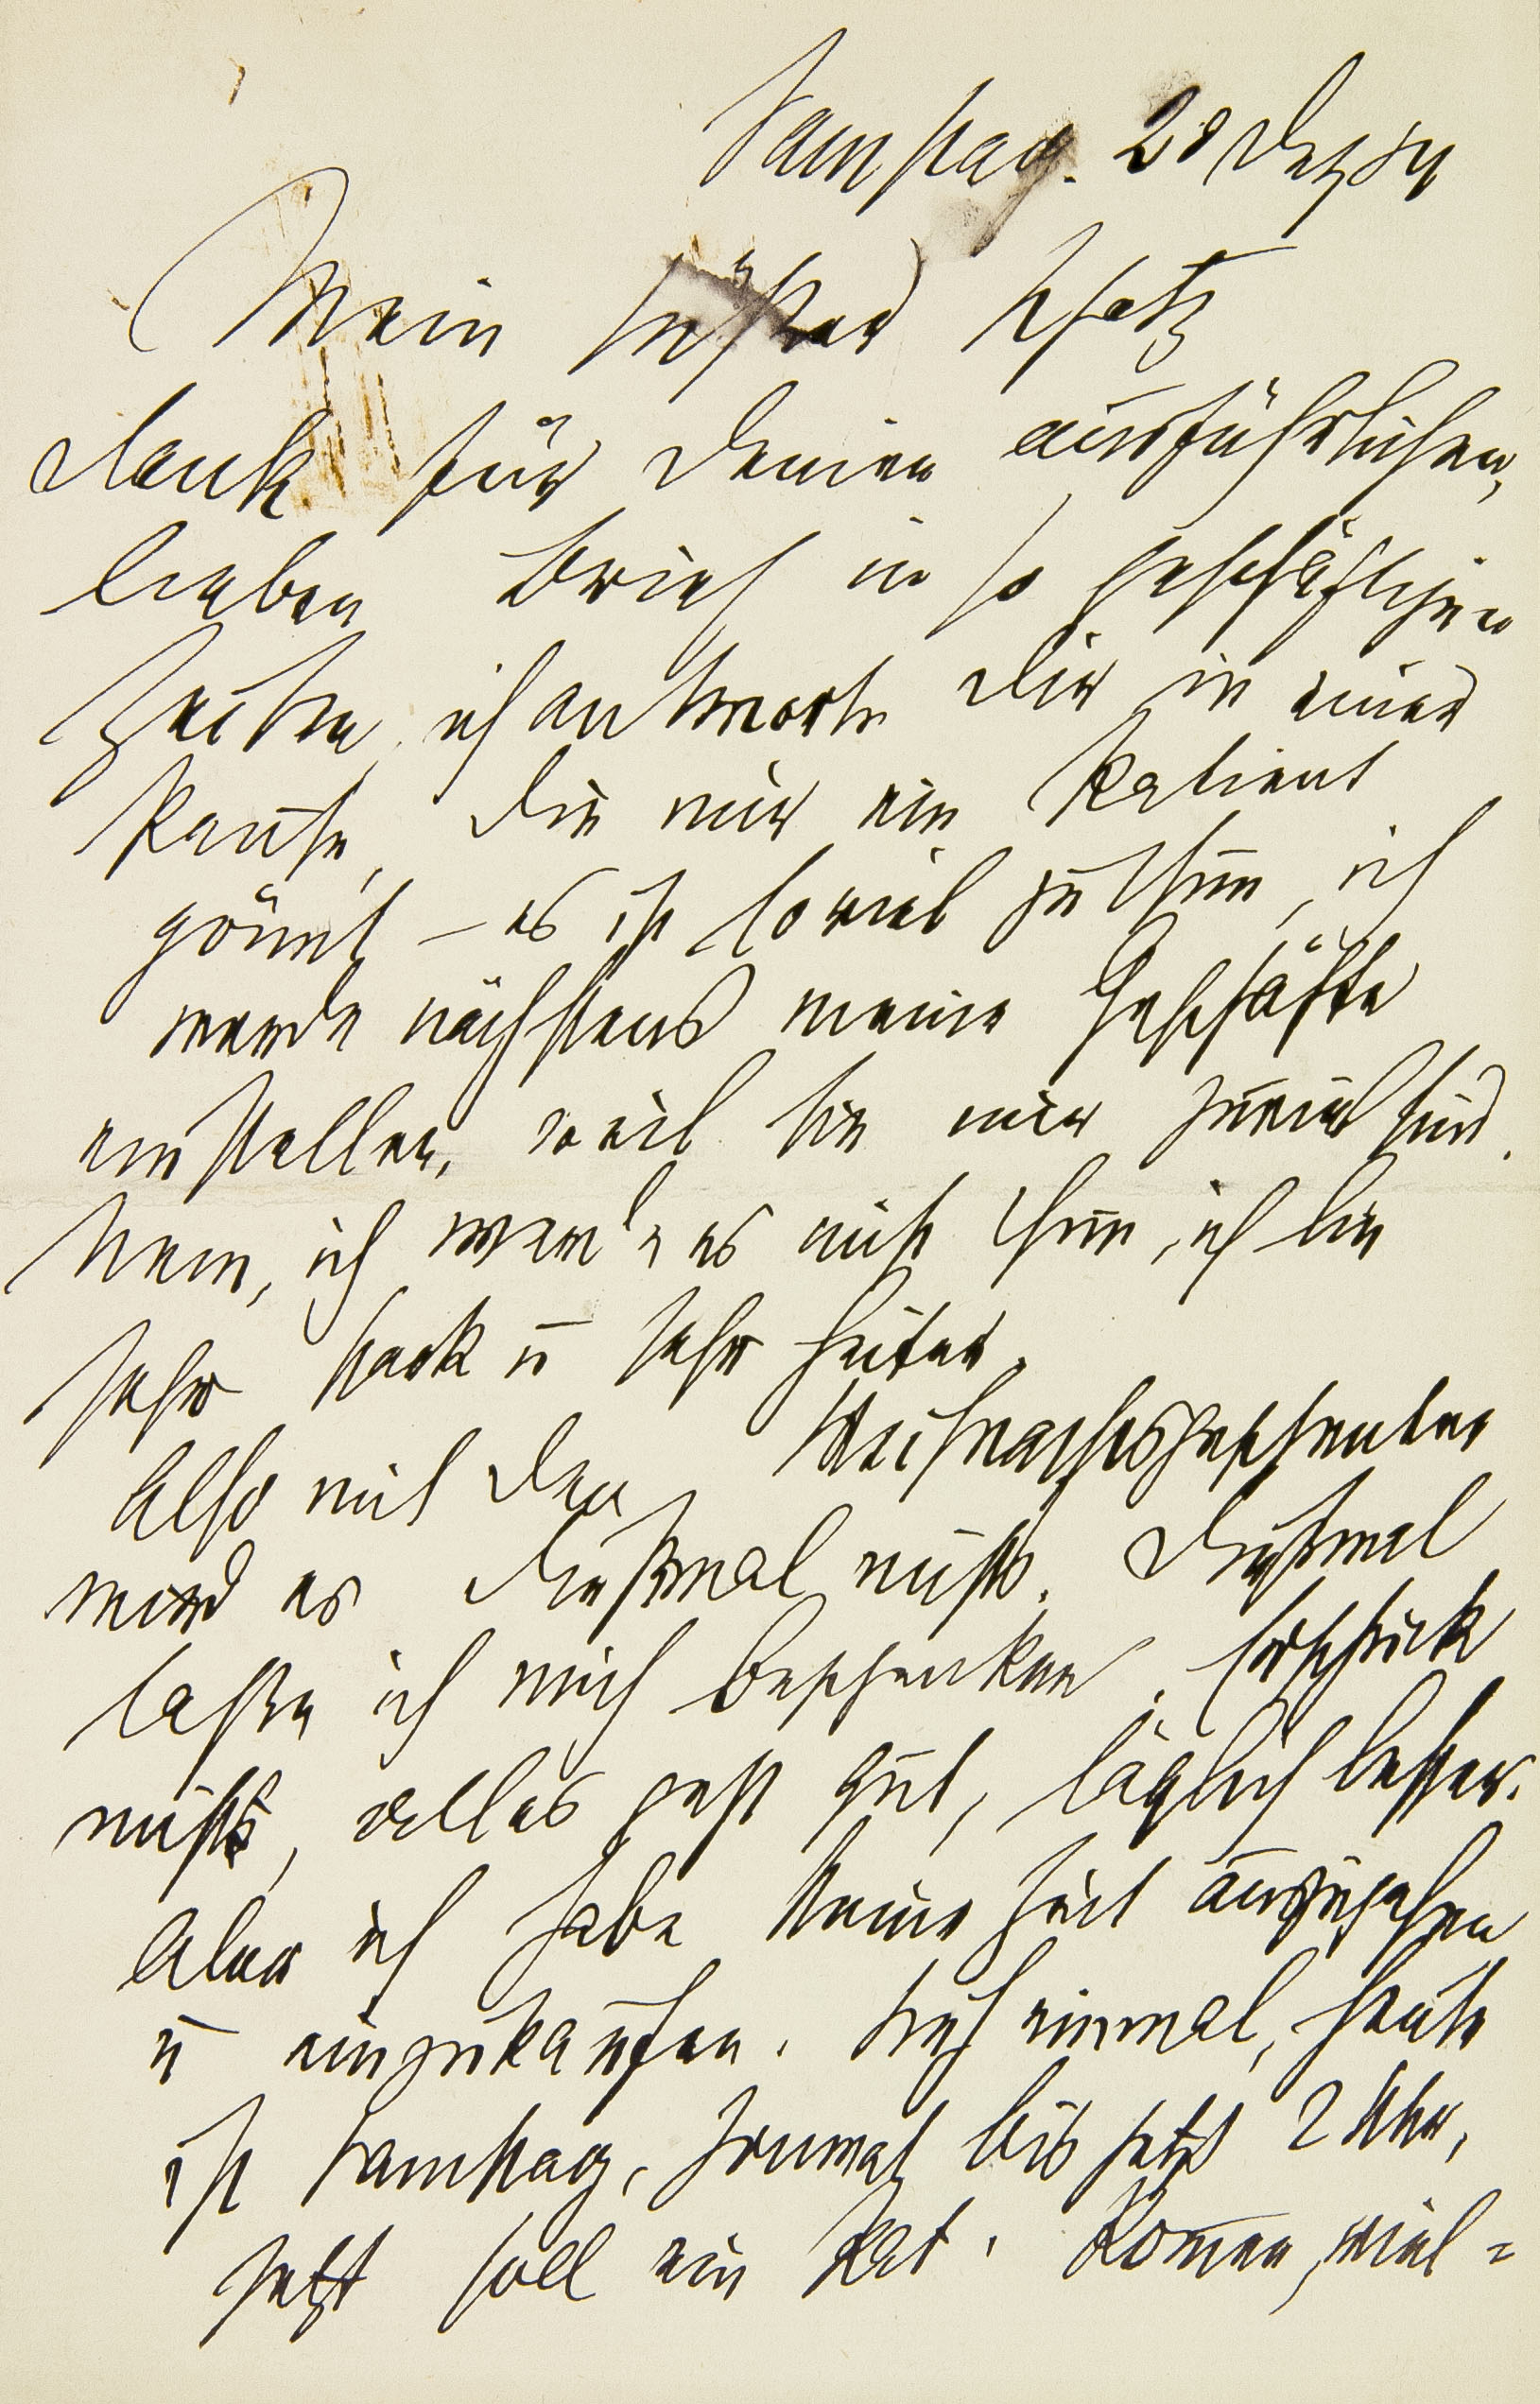 Samstag. 20 Dez 84
Mein süßer Schatz
Dank für Deinen ausführlichen,
lieben Brief in so geschäftigen
Zeiten, ich antworte Dir in einer
Pause, die mir ein Patient
gönnt – es ist soviel zu thun, ich
werde nächstens meine Geschäfte
einstellen, weil sie mir zuviel sind.
Nein, ich werd's es nicht thun, ich bin
sehr stark u sehr heiter.
Also mit den Weihnachtsgeschenken
wird es dießmal nichts. Dießmal
laße ich mich beschenken. Erschrick
nicht, alles geht gut, täglich besser.
Aber ich habe keine Zeit auszugehen
u einzukaufen. Sieh einmal, heute
ist Samstag, Journal bis jetzt 2 Uhr,
jetzt soll ein Pat. komen, viel=